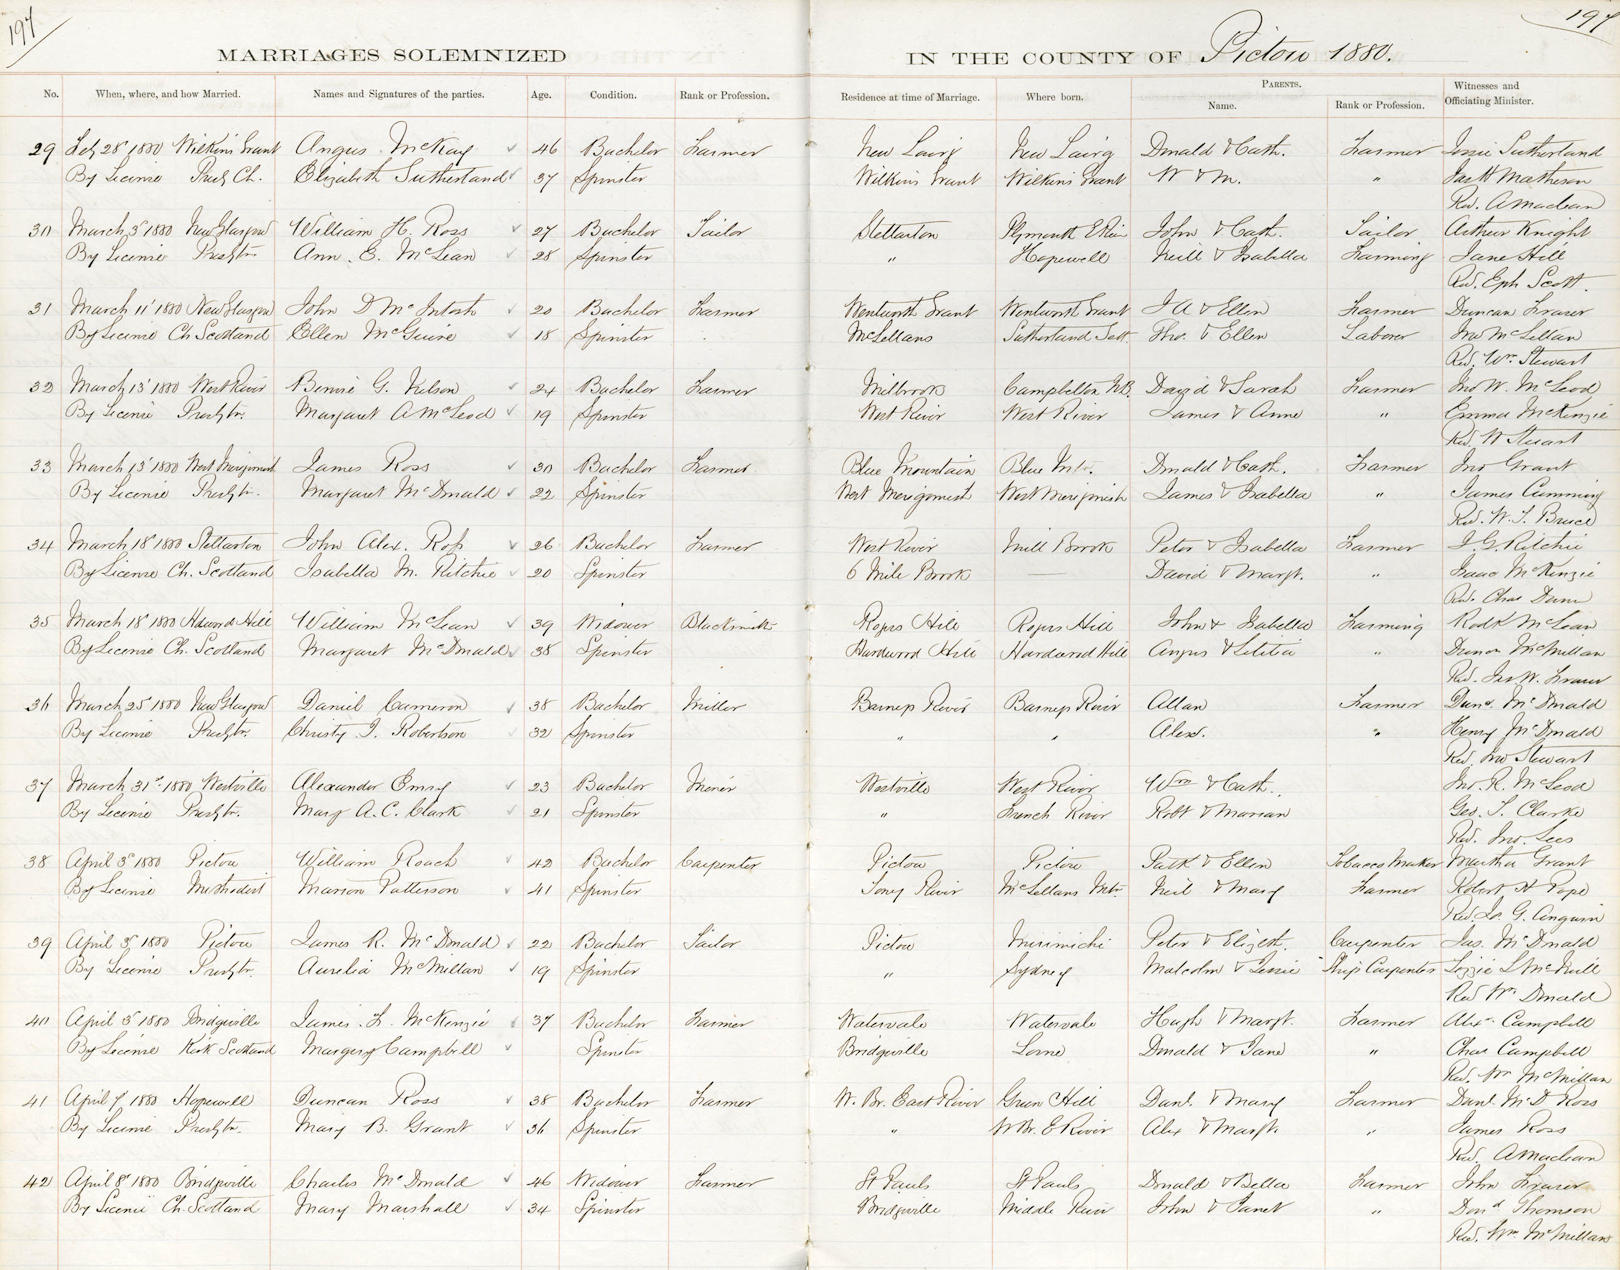 197
197
MARRIAGES SOLEMNIZED IN THE COUNTY OF Pictou 1880.
No. When, where, and how Married. Names and Signatures of the parties. Age. Condition. Rank or Profession. Residence at time of Marriage. Where born. PARENTS. Name. Rank or Profession. Witnesses and Officiating Minister.
29 Feb 28 1880 Wilkins Grant Angus McKay 46 Bachelor Farmer New Lairg New Lairg Donald & Cath. Farmer Jessie Sutherland
By License Presb Ch. Elizabeth Sutherland 37 Spinster Wilkins Grant Wilkins Grant W & M. " Matheson
Rev. A Maclean
30 March 3 1880 New Glasgow William H. Ross 27 Bachelor Tailor Stellarton Plymouth E River John & Cath. Tailor Arthur Knight
By License Presbytn Ann E. McLean 28 Spinster " Hopewell Neill & Isabella Farming Jane Hill
Rev. Eph Scott.
31 March 11 1880 New Glasgow John D McIntosh 20 Bachelor Farmer Wentworth Grant Wentworth Grant J A & Ellen Farmer Duncan Fraser
By License Ch Scotland Ellen McGuire 18 Spinster McLellans Sutherland Sett. Tho. & Ellen Laborer Jno McLellan
Rev. Wm Stewart
32 March 13 1880 West River G. Nelson 24 Bachelor Farmer Millbrook Campbellton N.B. David & Sarah Farmer Jno W. McLeod
By License Presbytn. Margaret A McLeod 19 Spinster West River West River James & Anne " Emma McKenzie
Rev. W Stuart
33 March 13 1880 West Merigomish James Ross 30 Bachelor Farmer Blue Mountain Blue Mtn. Donald & Cath. Farmer Jno Grant
By License Presbytn. Margaret McDonald 22 Spinster West Merigomish West Merigomish James & Isabella " James Cumming
Rev. W. T. Bruce
34 March 18 1880 Stellarton John Alex. Ross 26 Bachelor Farmer West River Mill Brook Peter & Isabella Farmer J. G. Ritchie
By License Ch. Scotland Isabella M. Ritchie 20 Spinster 6 Mile Brook — David & Margt. " Isaac McKenzie
Rev. Chas Dunn
35 March 18 1880 Hdwood Hill William McLean 39 Widower Blacksmith Rogers Hill Rogers Hill John & Isabella Farming Rodk McLean
By License Ch. Scotland Margaret McDonald 38 Spinster Hardwood Hill Hardwood Hill Angus & Letitia " Duncan McMillan
Rev. Jno W. Fraser
36 March 25 1880 New Glasgow Daniel Cameron 38 Bachelor Miller Barneys River Barneys River Allan Farmer Dunc. McDonald
By License Presbytn. Christy I. Robertson 32 Spinster " " Alexr. " Henry McDonald
Rev. Jno Stewart
37 March 31st 1880 Westville Alexander Emry 23 Bachelor Miner Westville West River Wm & Cath. Jno. R. McLeod
By License Presbytn. Mary A. C. Clark 21 Spinster " French River Robt & Marian Geo. T. Clarke
Rev. Jno. Lees
38 April 3 1880 Pictou William Roach 42 Bachelor Carpenter Pictou Pictou Patk & Ellen Tobacco Maker Martha Grant
By License Methodist Marion Patterson 41 Spinster Tony River McLellans Mtn. Neil & Mary Farmer Robert H Pope
Rev. Jos. G. Angwin
39 April 3 1880 Pictou James R. McDonald 22 Bachelor Tailor Pictou Mirimichi Peter & Elizth. Carpenter Jas. McDonald
By License Presbytn. Aurelia McMillan 19 Spinster " Sydney Malcolm & Jessie Ship Carpenter Lizzie L McNeill
Rev Wm. Donald
40 April 3 1880 Bridgeville James F. McKenzie 37 Bachelor Farmer Watervale Watervale Hugh & Margt. Farmer Alex. Campbell
By License Kirk Scotland Margery Campbell Spinster Bridgeville Lorne Donald & Jane " Chas Campbell
Rev. Wm McMillan
41 April 7 1880 Hopewell Duncan Ross 38 Bachelor Farmer W. Br. East River Green Hill Danl. & Mary Farmer Danl. McD Ross
By License Presbytn. Mary B. Grant 36 Spinster " W Br. E River Alex & Margt. " James Ross
Rev. A Maclean
42 April 8 1880 Bridgeville Charles McDonald 46 Widower Farmer St Pauls St Pauls Donald & Bella Farmer John Fraser
By License Ch. Scotland Mary Marshall 34 Spinster Bridgeville Middle River John & Janet " Dond Thomson
Rev. Wm. McMillan